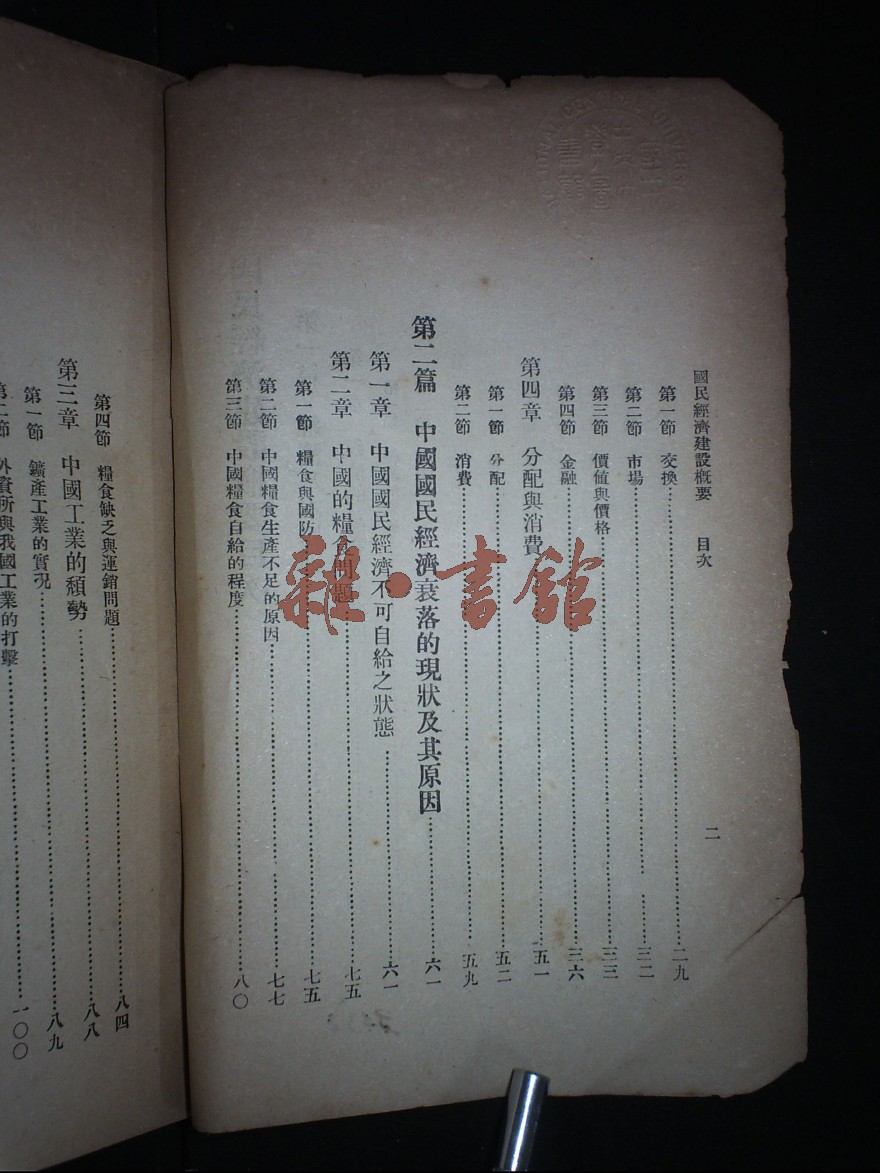 國民經濟建設概要 目次 二
第一節 交換……二九
第二節 市場……三二
第三節 價值與價格……三三
第四節 金融……三六
第四章 分配與消費……五一
第一節 分配……五二
第二節 消費……五九
第二篇 中國國民經濟衰落的現狀及其原因……六一
第一章 中國國民經濟不可自給之狀態……六一
第二章 中國的糧食問題……七五
第一節 糧食與國防……七五
第二節 中國糧食生產不足的原因……七七
第三節 中國糧食自給的程度……八〇
第四節 糧食缺乏與運銷問題……八四
第三章 中國工業的頹勢……八八
第一節 鑛產工業的實況……八九
第二節 外資所與我國工業的打擊……一〇〇
雜·書館